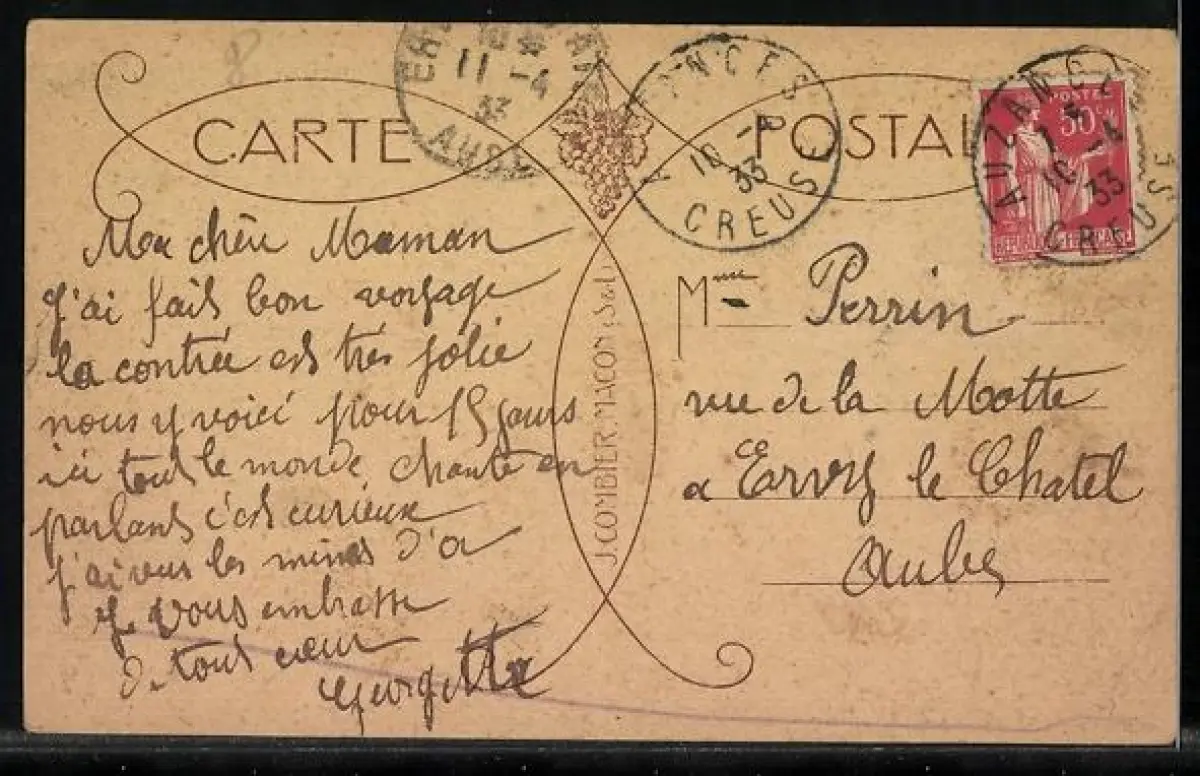 8
CARTE POSTALE
11 -4
33
AUZANCES
10 -4
33
CREUSE
POSTES
50c
AUZANCES
10 -4
33
CREUSE
Mon chère Maman
J'ai fais bon voyage
la contrée est très jolie
nous y voici pour 15 jours
ici tout le monde chante en
parlant c'est curieux
j'ai vus les mines d'o
Je vous embrasse
de tout cœur
Georgette
J. COMBIER MACON
Mme Perrin
rue de la Motte
a Ervy le Chatel
Aube